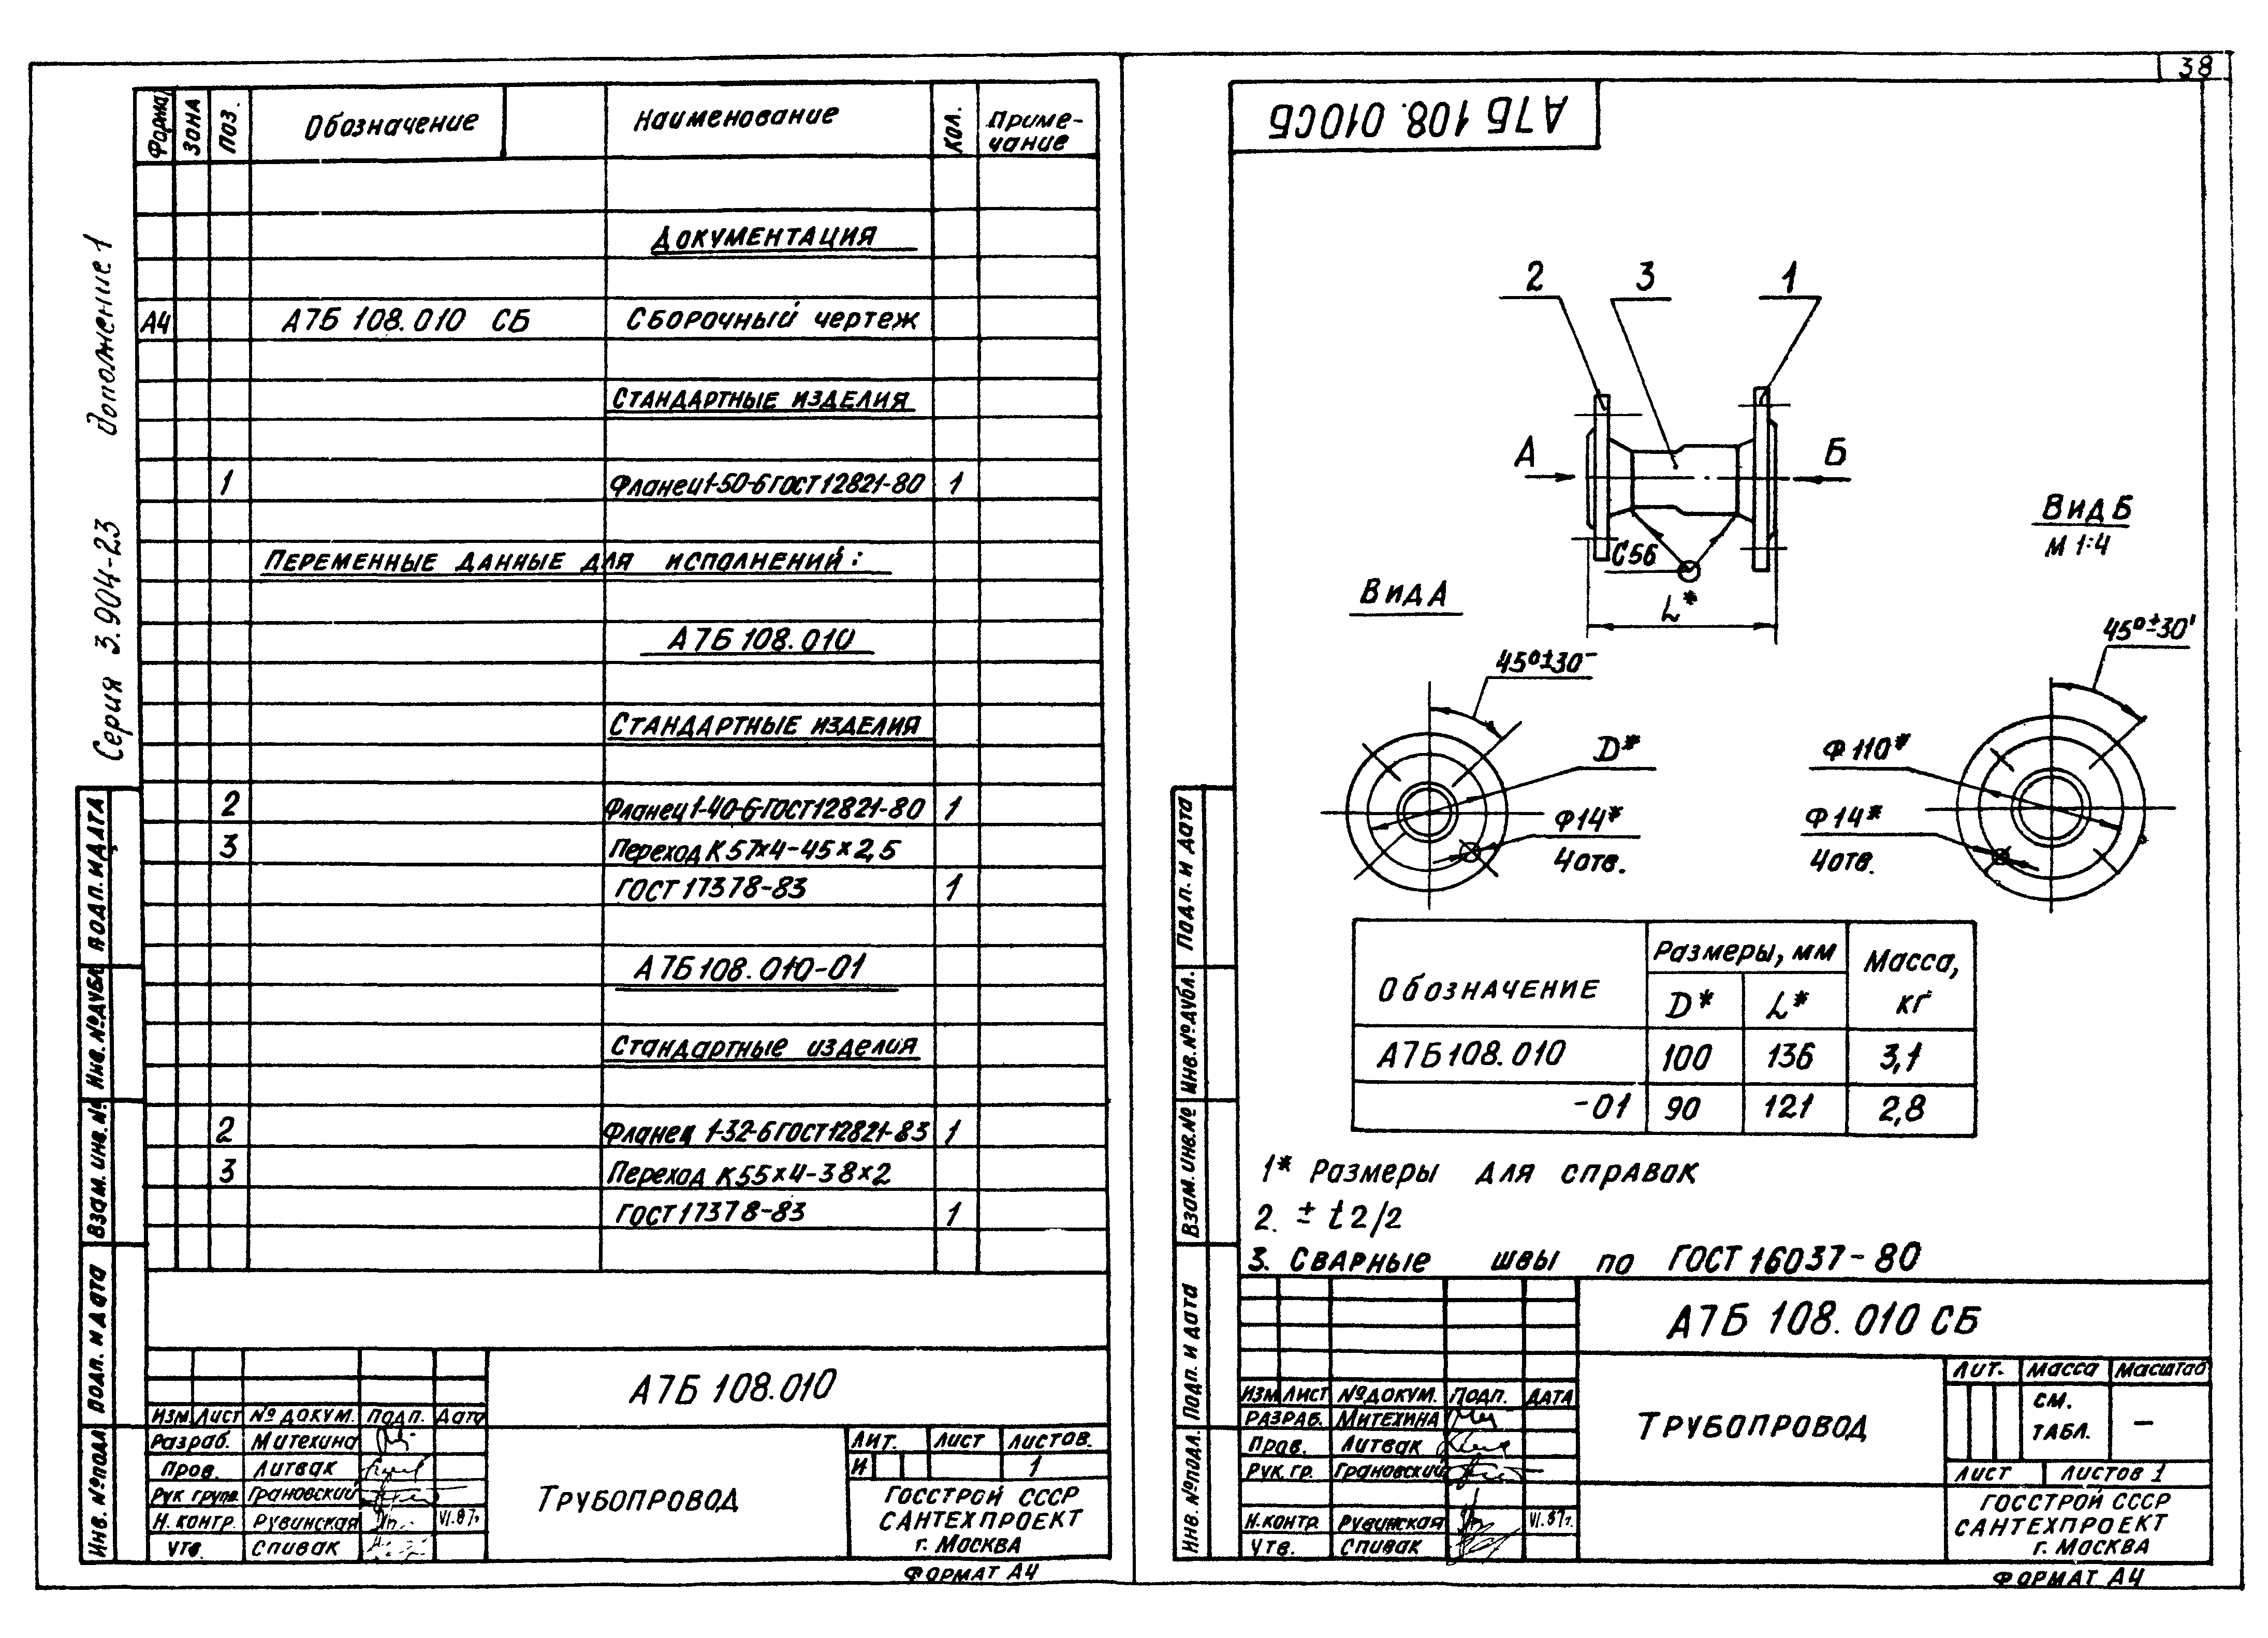 38
Серия 3.904-23 Дополнение 1
Формат Зона Поз. Обозначение Наименование Кол. Приме-
чание
Документация
А4 А7Б 108.010 СБ Сборочный чертеж
Стандартные изделия
1 Фланец 1-50-6 ГОСТ 12821-80 1
Переменные данные для исполнений:
А7Б 108.010
Стандартные изделия
2 Фланец 1-40-6-ГОСТ 12821-80 1
3 Переход К 57×4-45×2,5
ГОСТ 17378-83 1
А7Б 108.010-01
Стандартные изделия
2 Фланец 1-32-6 ГОСТ 12821-83 1
3 Переход К 55×4-38×2
ГОСТ 17378-83 1
Подп. и дата
Инв. № дубл.
Взам. инв. №
Подп. и дата
Инв. № подл.
А7Б 108.010
Изм. Лист № докум. Подп. Дата
Разраб. Митехина
Пров. Литвак
Рук. групп. Грановский
Н. контр. Рувинская VI.87г.
Утв. Спивак
Трубопровод
Лит. Лист Листов.
И 1
ГОССТРОЙ СССР
САНТЕХПРОЕКТ
г. Москва
Формат А4
А7Б 108.010СБ
2 3 1
А Б
С56
L*
Вид А
Вид Б
М 1:4
45°±30'
45°±30'
D*
Ф14*
4 отв.
Ф110*
Ф14*
4 отв.
Обозначение Размеры, мм Масса,
кг
D* L*
А7Б 108.010 100 136 3,1
-01 90 121 2,8
1* Размеры для справок
2. ± t2/2
3. Сварные швы по ГОСТ 16037-80
Подп. и дата
Инв. № дубл.
Взам. инв. №
Подп. и дата
Инв. № подл.
А7Б 108.010 СБ
Изм. Лист № докум. Подп. Дата
Разраб. Митехина
Пров. Литвак
Рук. гр. Грановский
Н. контр. Рувинская VI.87г.
Утв. Спивак
Трубопровод
Лит. Масса Масштаб
См.
табл. —
Лист Листов 1
ГОССТРОЙ СССР
САНТЕХПРОЕКТ
г. Москва
Формат А4